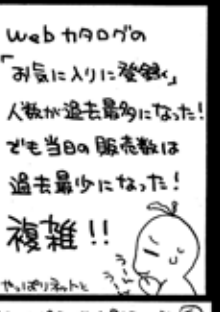 Webカタログの
「お気に入りに登録」
人数が過去最多になった!
でも当日の販売数は
過去最少になった!
複雑!!
うーん
やっぱりネットと